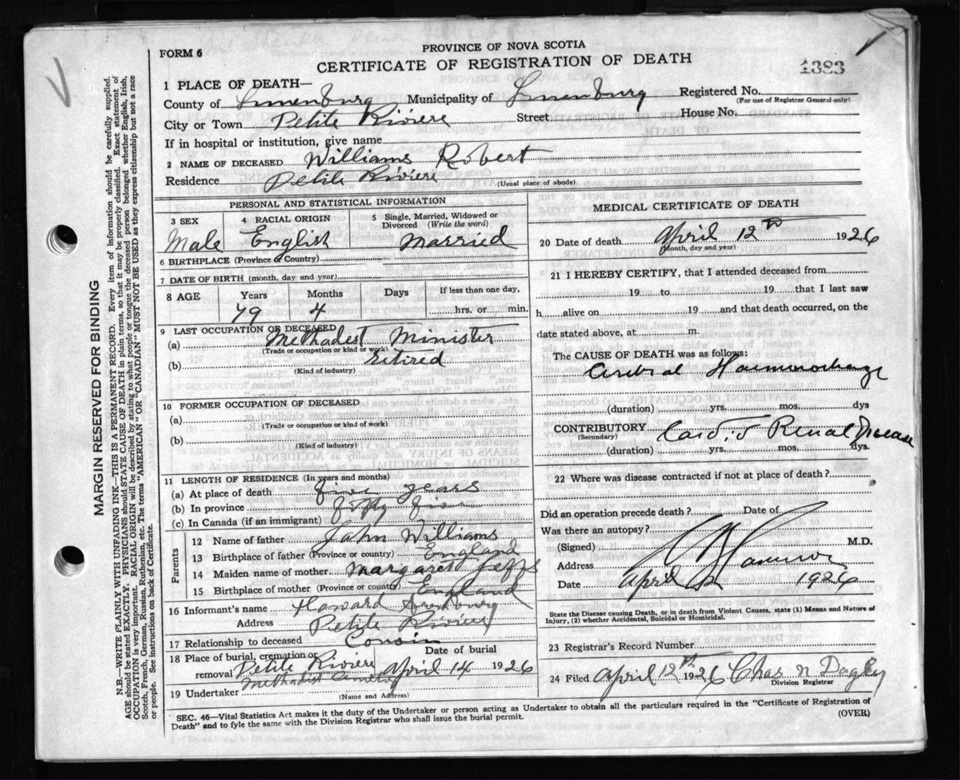 PROVINCE OF NOVA SCOTIA
FORM 6
CERTIFICATE OF REGISTRATION OF DEATH
4383
1 PLACE OF DEATH—
County of Lunenburg Municipality of Lunenburg Registered No.
(For use of Registrar General only)
City or Town Petite Riviere Street House No.
If in hospital or institution, give name
2 NAME OF DECEASED Williams Robert
Residence Petite Riviere
(Usual place of abode)
PERSONAL AND STATISTICAL INFORMATION
3 SEX 4 RACIAL ORIGIN 5 Single, Married, Widowed or Divorced (Write the word)
Male English Married
6 BIRTHPLACE (Province or Country)
7 DATE OF BIRTH (month, day and year)
8 AGE Years Months Days If less than one day,
79 4 hrs. or min.
9 LAST OCCUPATION OF DECEASED
(a) Methodist Minister
(Trade or occupation or kind of work)
(b) Retired
(Kind of industry)
10 FORMER OCCUPATION OF DECEASED
(a)
(Trade or occupation or kind of work)
(b)
(Kind of industry)
11 LENGTH OF RESIDENCE (In years and months)
(a) At place of death five years
(b) In province fifty five
(c) In Canada (if an immigrant)
Parents
12 Name of father John Williams
13 Birthplace of father (Province or country) England
14 Maiden name of mother Margaret
15 Birthplace of mother (Province or country) England
16 Informant's name Howard
Address Petite Riviere
17 Relationship to deceased Cousin
18 Place of burial, cremation or removal Petite Riviere Methodist Date of burial April 14 1926
19 Undertaker
(Name and Address)
MEDICAL CERTIFICATE OF DEATH
20 Date of death April 12th 1926
(Month, day and year)
21 I HEREBY CERTIFY, that I attended deceased from
19 to 19 that I last saw
h alive on 19 and that death occurred, on the
date stated above, at m.
The CAUSE OF DEATH was as follows:
Haemorrhage
(duration) yrs. mos. dys
CONTRIBUTORY Renal Disease
(Secondary)
(duration) yrs. mos. dys.
22 Where was disease contracted if not at place of death?
Did an operation precede death? Date of
Was there an autopsy?
(Signed) M.D.
Address
Date April 12 1926
State the Disease causing Death, or in death from Violent Causes, state (1) Means and Nature of
Injury, (2) whether Accidental, Suicidal or Homicidal.
23 Registrar's Record Number
24 Filed April 12th 1926 Chas N
Division Registrar
SEC. 46—Vital Statistics Act makes it the duty of the Undertaker or person acting as Undertaker to obtain all the particulars required in the "Certificate of Registration of
Death" and to fyle the same with the Division Registrar who shall issue the burial permit.
(OVER)
MARGIN RESERVED FOR BINDING
N.B.—WRITE PLAINLY WITH UNFADING INK—THIS IS A PERMANENT RECORD. Every item of information should be carefully supplied.
AGE should be stated EXACTLY. PHYSICIANS should STATE CAUSE OF DEATH in plain terms, so that it may be properly classified. Exact statement of
OCCUPATION is very important. RACIAL ORIGIN will be described by stating to what people or tongue the deceased person belonged whether English, Irish,
Scotch, French, German, Russian, Ruthenian, etc. The terms "AMERICAN" OR "CANADIAN" MUST NOT BE USED as they express citizenship but not a race
or people. See instructions on back of Certificate.